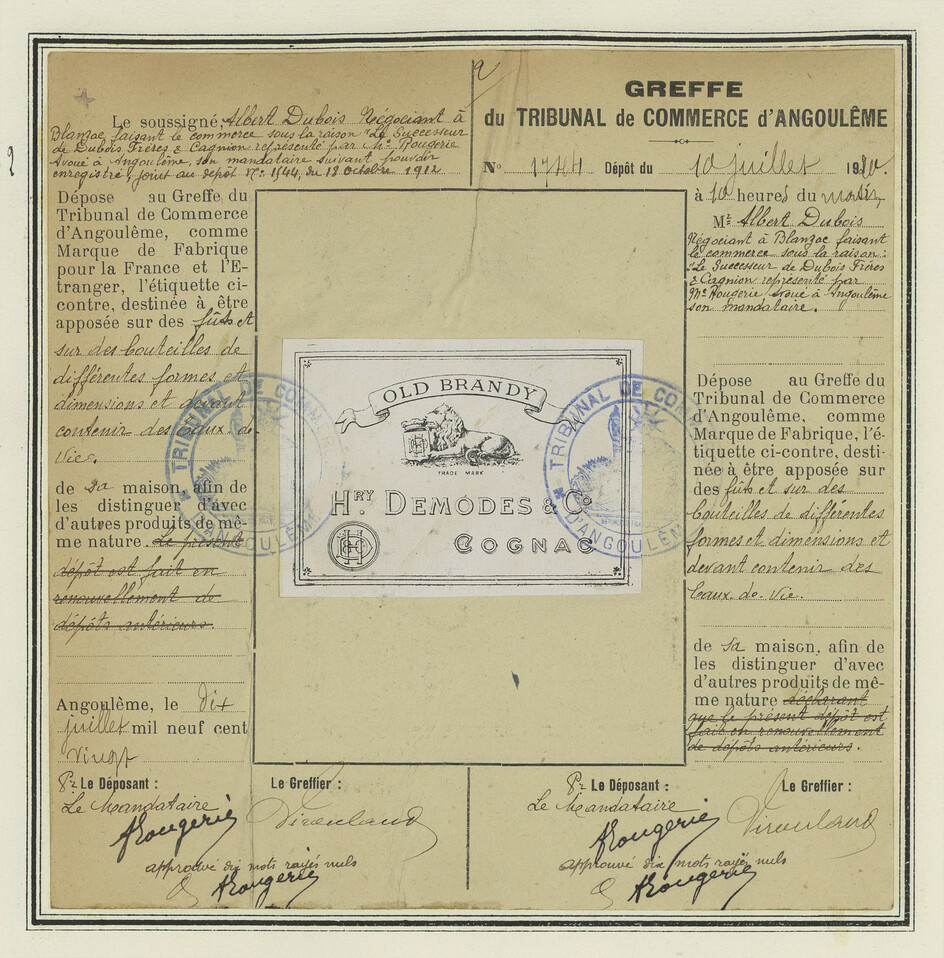 2
Le soussigné, Albert Dubois Négociant à
Blanzac faisant le commerce sous la raison "Le Successeur
de Dubois Frères & Cagnion représenté par Me Rougerie
Avoué à Angoulême, son mandataire suivant pouvoir
enregistré, joint au dépôt No: 1544, du 18 octobre 1912
Dépose au Greffe du
Tribunal de Commerce
d'Angoulême, comme
Marque de Fabrique
pour la France et l'E-
tranger, l'étiquette ci-
contre, destinée à être
apposée sur des fûts et
sur des bouteilles de
différentes formes et
dimensions et devant
contenir des Eaux-de-
Vie.
de sa maison, afin de
les distinguer d'avec
d'autres produits de mê-
me nature. Le présent
dépôt est fait en
renouvellement de
dépôts antérieurs.
Angoulême, le dix
juillet mil neuf cent
vingt
Pr Le Déposant :
Le Mandataire
Rougerie
Le Greffier :
approuvé dix mots rayés nuls
Rougerie
OLD BRANDY
TRADE MARK
HRY DEMODES & Co
COGNAC
TRIBUNAL DE COMM
D'ANGOULÊME
TRIBUNAL DE CO
D'ANGOULÊM
GREFFE
du TRIBUNAL de COMMERCE d'ANGOULÊME
No 1744 Dépôt du 10 juillet 1920
à 10 heures du matin
Mr Albert Dubois
Négociant à Blanzac faisant
le commerce sous la raison :
"Le Successeur de Dubois Frères
& Cagnion représenté par
Me Rougerie avoué à Angoulême
son mandataire.
Dépose au Greffe du
Tribunal de Commerce
d'Angoulême, comme
Marque de Fabrique, l'é-
tiquette ci-contre, desti-
née à être apposée sur
des fûts et sur des
bouteilles de différentes
formes et dimensions et
devant contenir des
Eaux-de-Vie.
de sa maison, afin de
les distinguer d'avec
d'autres produits de mê-
me nature déclarant
que le présent dépôt est
fait en renouvellement
de dépôts antérieurs.
Pr Le Déposant :
Le Mandataire
Rougerie
Le Greffier :
approuvé dix mots rayés nuls
Rougerie